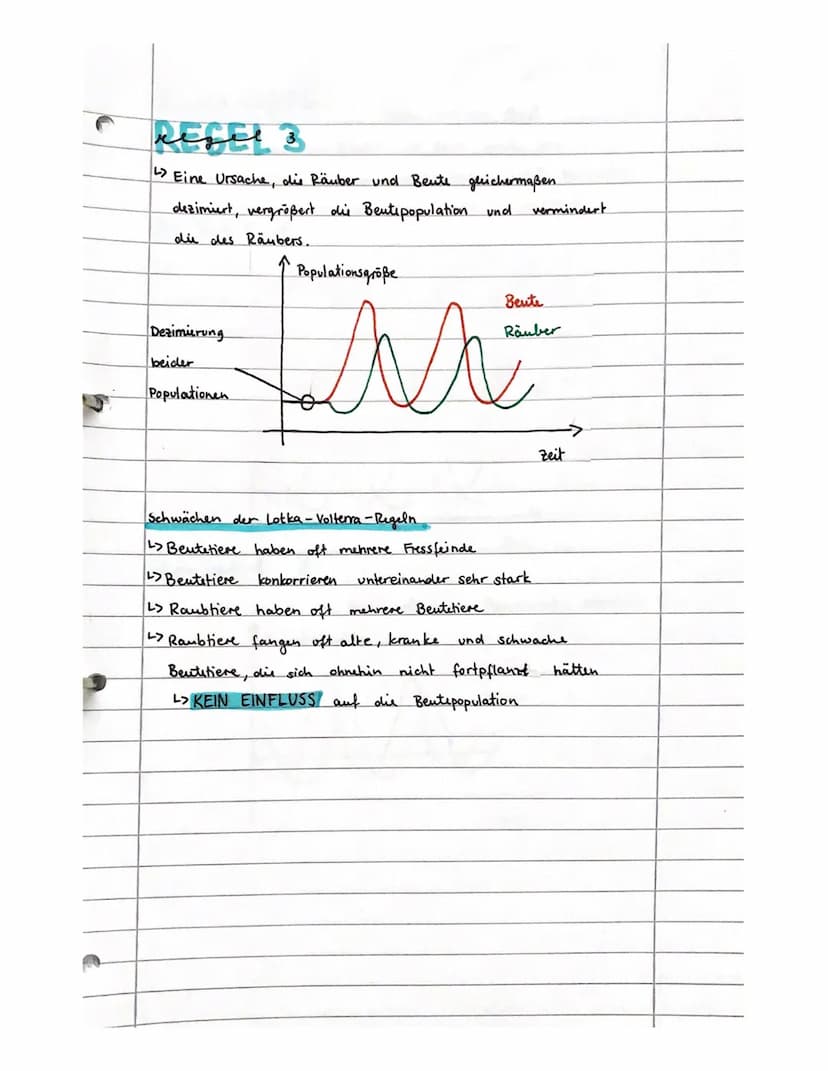 REGEL 3
regel 3
↳ Eine Ursache, die Räuber und Beute gleichermaßen
dezimiert, vergrößert die Beutepopulation und vermindert
die des Räubers.
Populationsgröße
Beute
Räuber
Dezimierung
beider
Populationen
Zeit
Schwächen der Lotka-Volterra-Regeln
↳ Beutetiere haben oft mehrere Fressfeinde
↳ Beutetiere konkorrieren untereinander sehr stark
↳ Raubtiere haben oft mehrere Beutetiere
↳ Raubtiere fangen oft alte, kranke und schwache
Beutetiere, die sich ohnehin nicht fortpflanzt hätten
↳ KEIN EINFLUSS auf die Beutepopulation